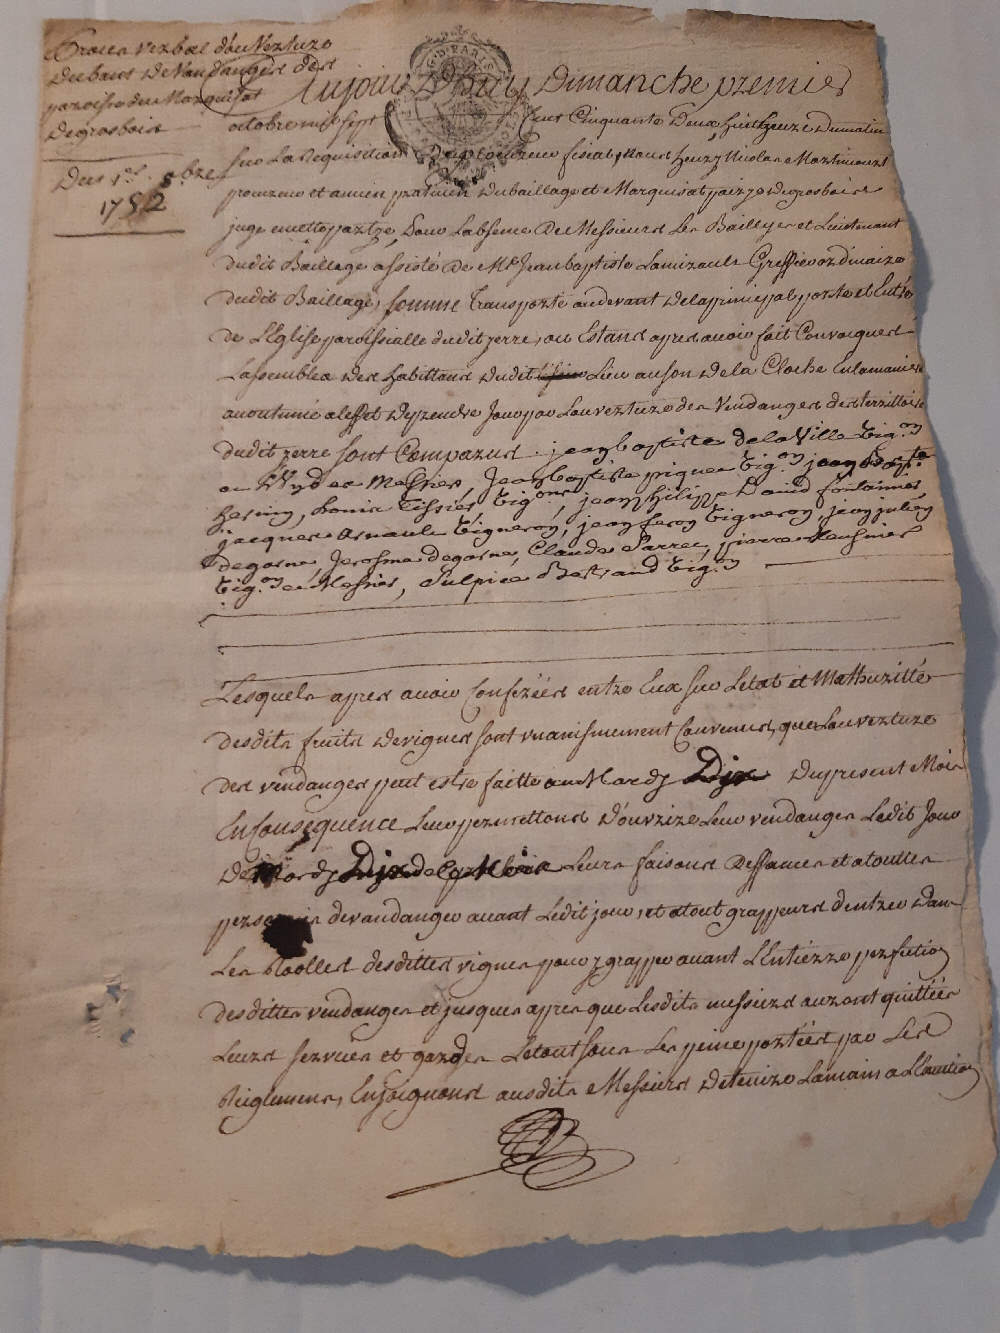 Procez verbal d'ouverture
du bans de Vandanges des
paroisse du Marquisat
de grosbois
Du 1er. 8bre
1752
G. D. PARIS
Aujourd'huy Dimanche premier
octobre mil sept Cent Cinquante Deux huit heure du matin
sur La Requisition du procureur fiscal, Nous henry Nicolas Martincourt
procureur et ancien praticien du baillage et Marquisat pairye de grosbois
juge en cette partye, pour Labsence De Messieurs Les Baillyer et Lieutenant
dudit Baillage assisté de Me. Jean baptiste Lamirault Greffier ordinaire
dudit Baillage, somme transporté au devant de la principal porte et Entrée
de L'Eglise paroissialle dudit yerre, ou Estans apres avoir fait Convocquer
Lassemblée des habittans dudit Lieu au son de la Cloche en la maniere
acoutumé a leffet de prendre Jour pour Louverture des Vendanges des territoire
dudit yerre sont Comparus jean baptiste de la Ville Vig.on
Messier, Jean baptiste pique Vig.on jean
Louis Tissier Vig.ons, jean philippe David
jacques Arnault Vigneron, jean feron Vigneron, jean julien
degorne, Jerosme degorne, Claude Parre, pierre Meusnier
Vig.on et Messier, Sulpice Bertrand Vig.on
Lesquels apres avoir Conferées entre Eux sur Letat et Mathuritté
desdits fruits de vignes sont unanimement Convenus, que Louverture
des vendanges peut estre faitte au Mardy Dix du present Mois
En Consequence Leur permettons d'ouvrire Leur vendanges Ledit Jour
De Mardy Dix de ce Mois Leurs faisons Deffances et a toutes
personnes de vandanger avant Ledit jour, et a tout grappeurs d'entrer Dans
Les Roolles desdittes vignes pour y grapper avant L'Entierre perfection
desdittes vendanges et jusques apres que Lesdits messiers auront quittées
Leurs services et gardes Le tout sous Les peine portées par Les
Reglemens, Enjoignons ausdits Messiers de tenire La main a L'Execution